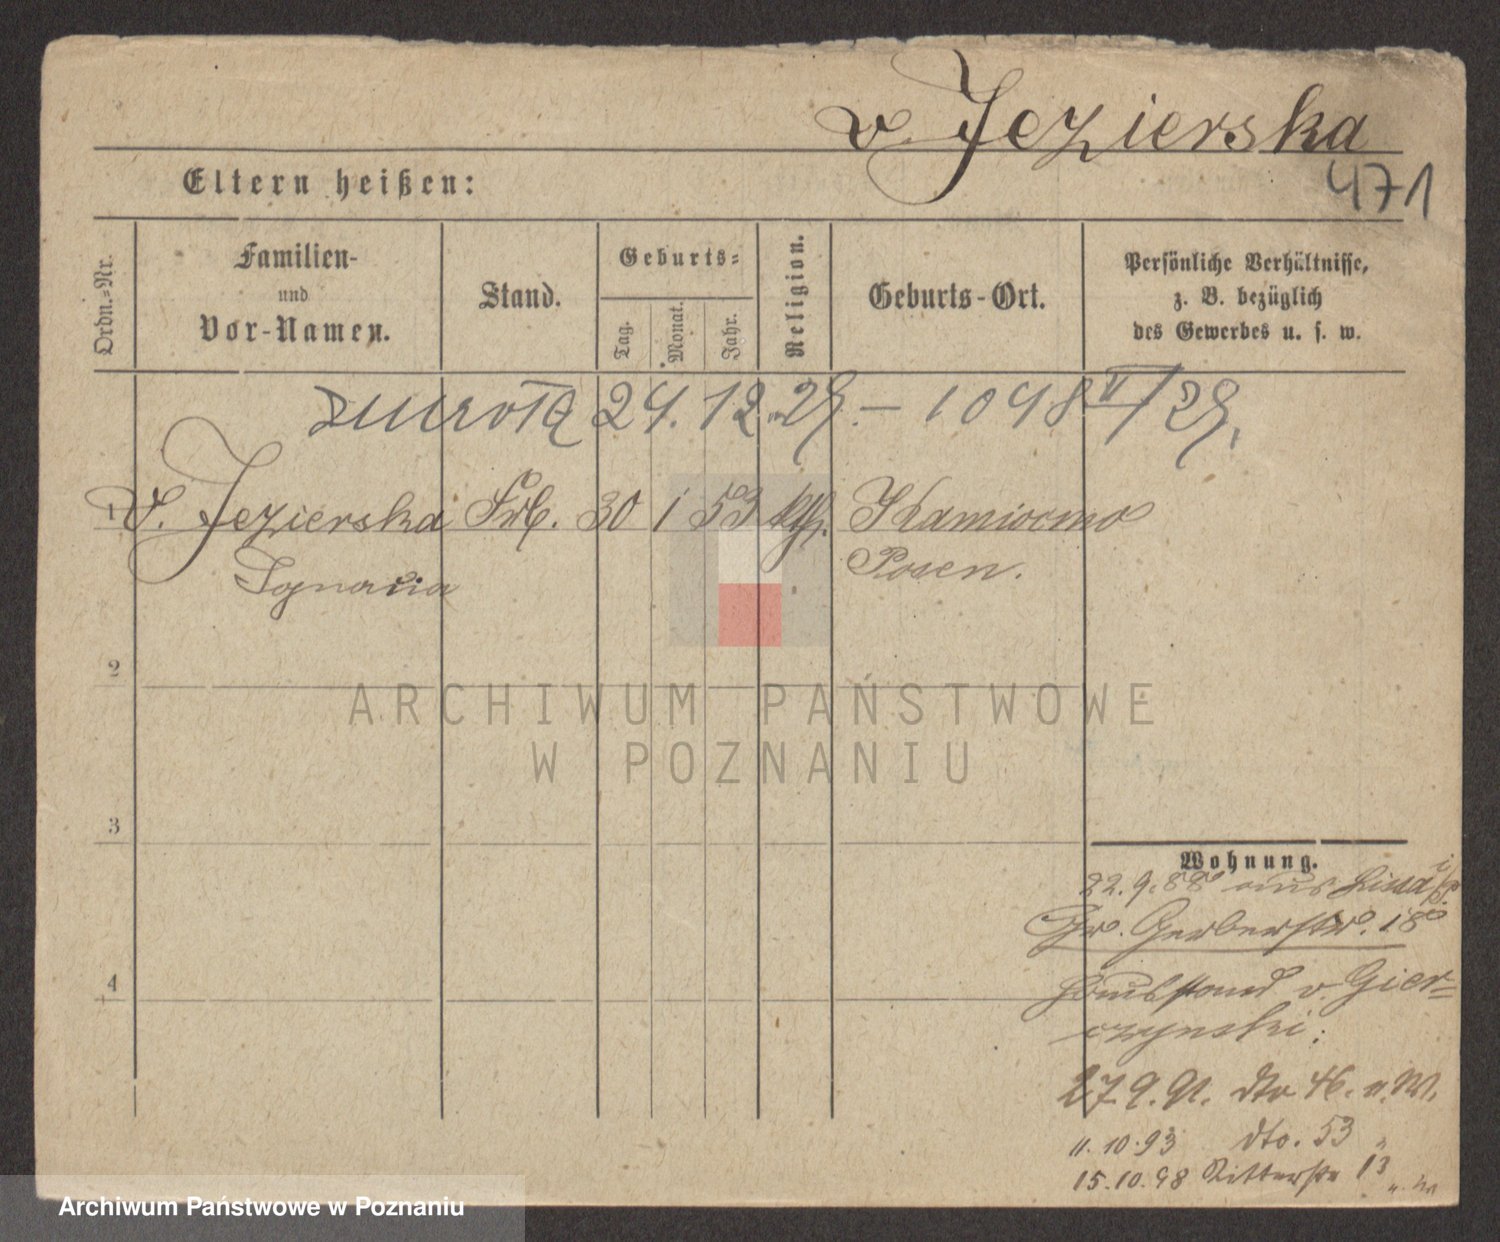 v. Jezierska
471
Eltern heißen:
Ordn.-Nr.
Familien-
und
Vor-Namen.
Stand.
Geburts-
Tag.
Monat.
Jahr.
Religion.
Geburts-Ort.
Persönliche Verhältnisse,
z. B. bezüglich
des Gewerbes u. s. w.
24. 12. 29. – 1048 VI/29.
1 v. Jezierska Frl. 30 1 53 kth. Kamionno
Ignacia Posen.
2
ARCHIWUM PAŃSTWOWE
W POZNANIU
3
Wohnung.
22.9.88 aus Lissa i/P.
Gr. Gerberstr. 18
4
Hausstand v. Gier-
czynski:
27.9.91. dto 46. v. W.
11.10.93 dto. 53 "
15.10.98 Ritterstr 13
Archiwum Państwowe w Poznaniu